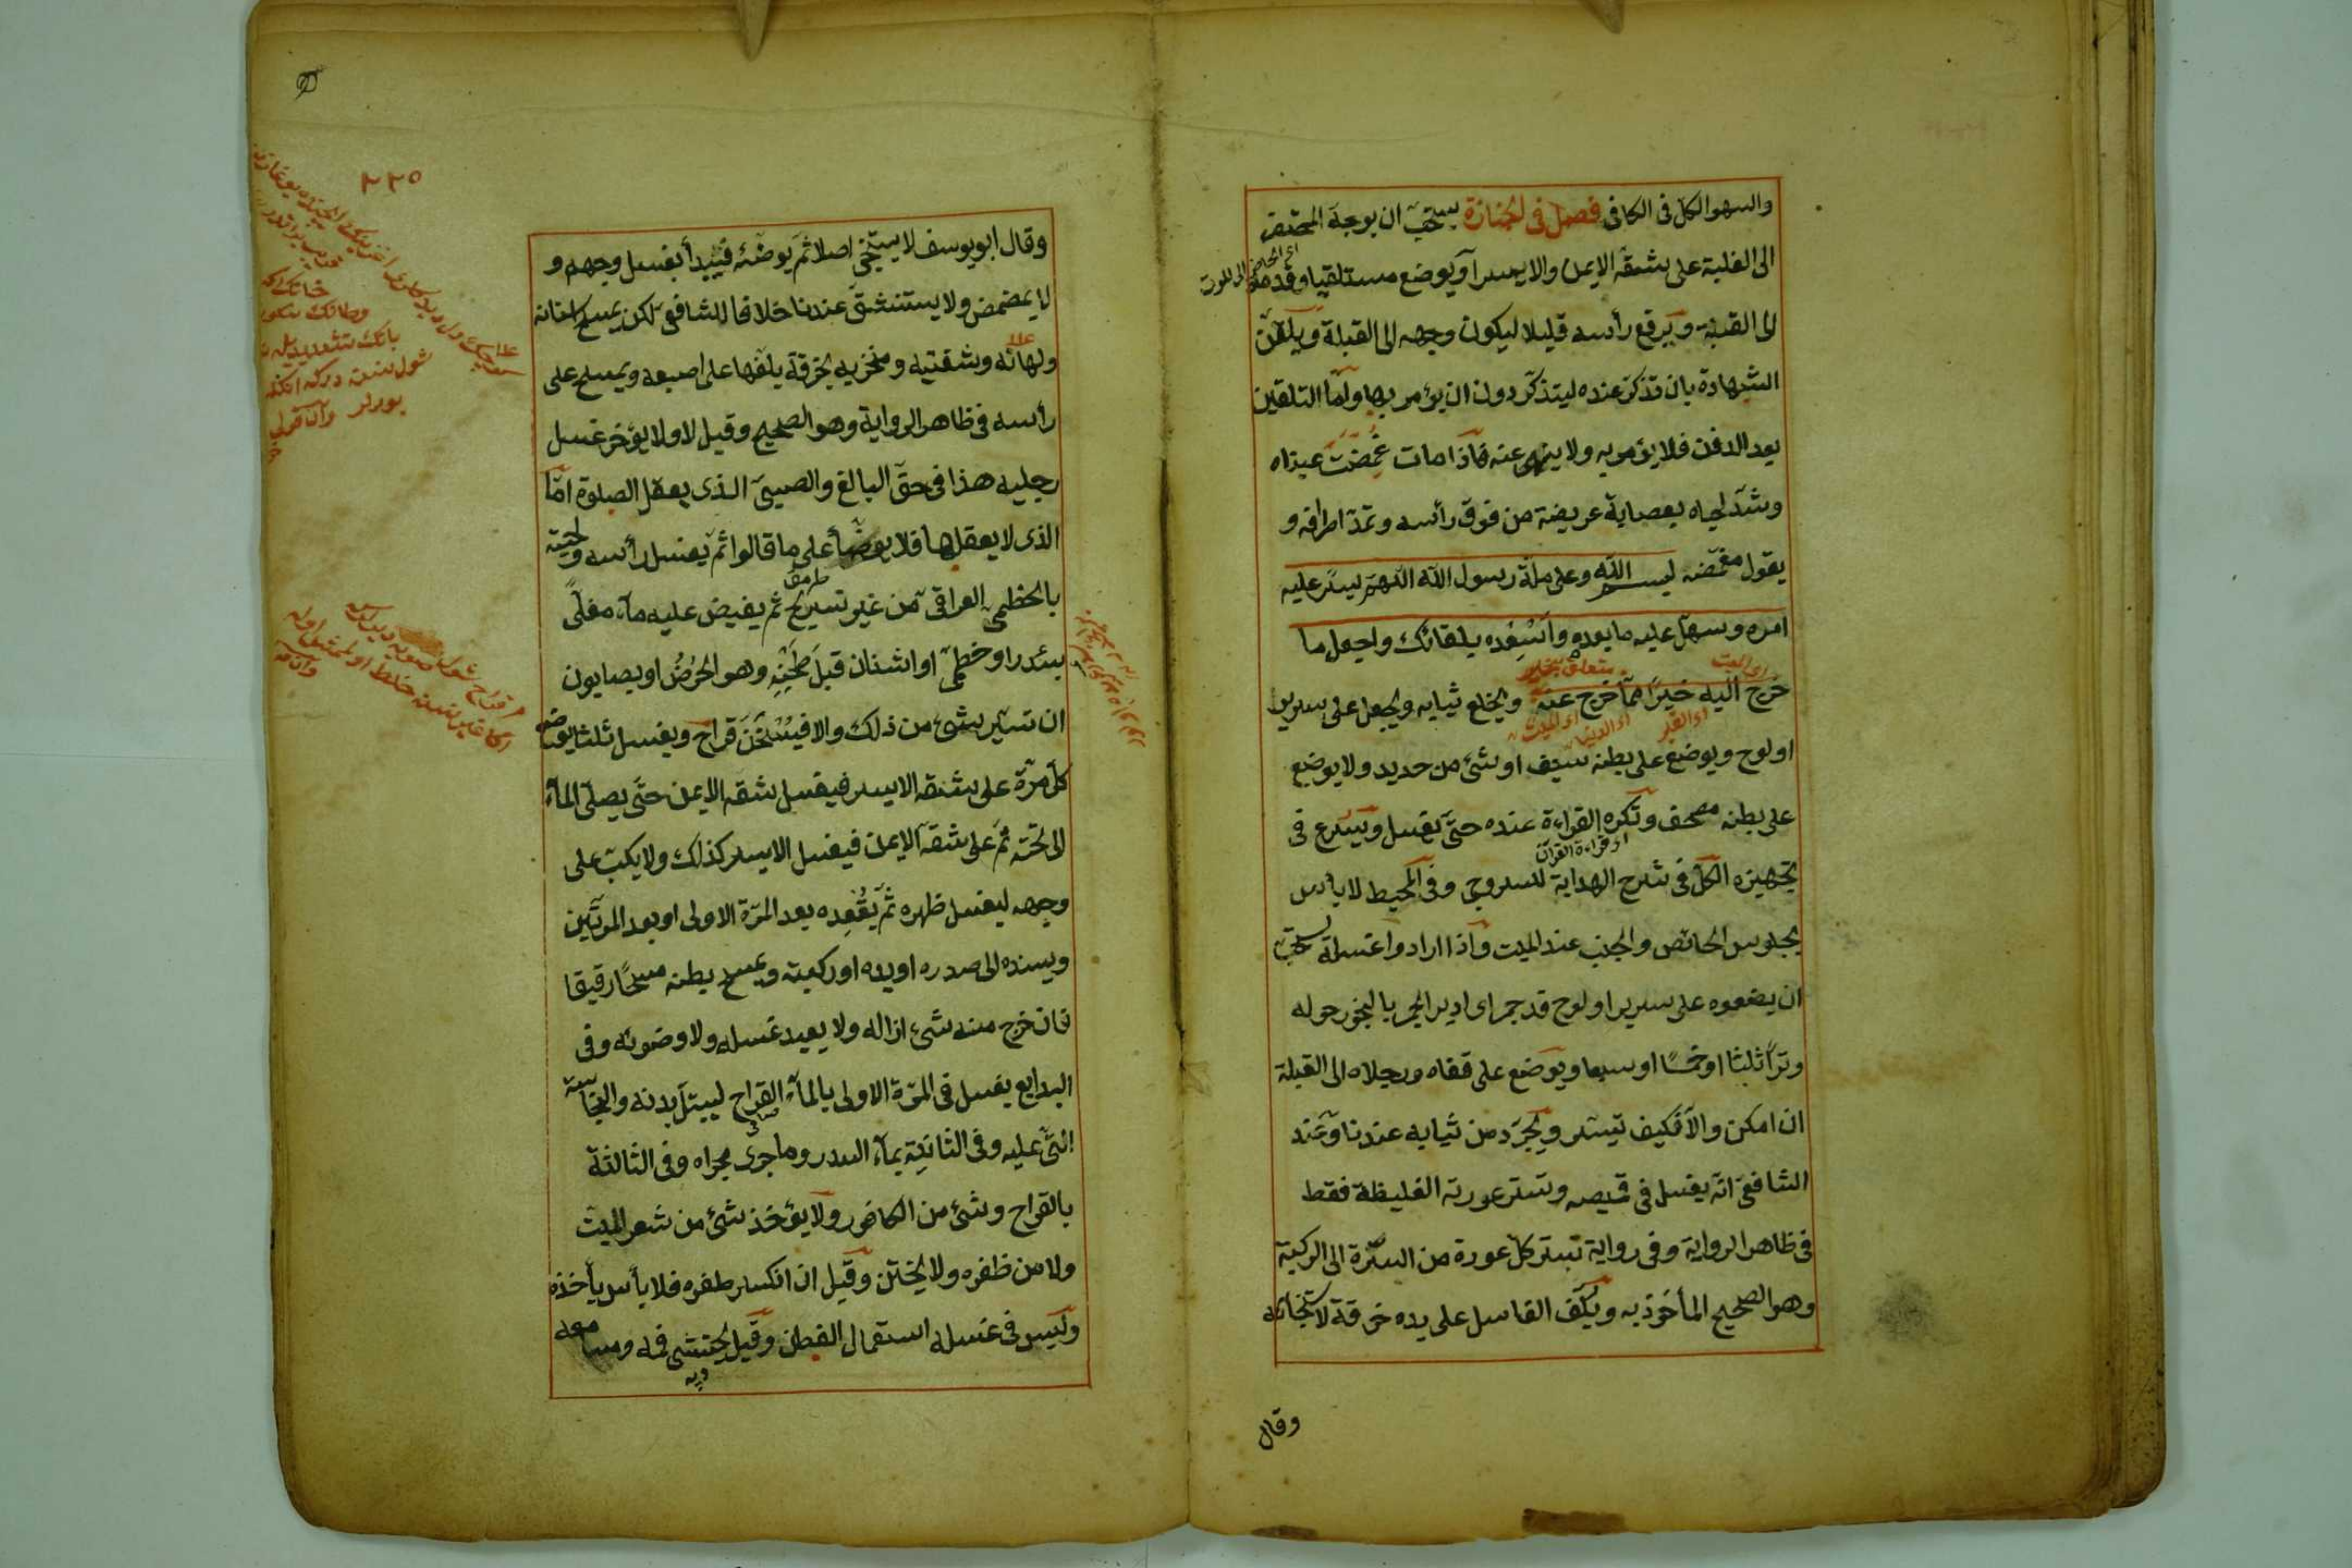 والسهو الكل فى الكافى فصل فى الجنازة يستحب ان يوجه المحتضر
الى القبلة على شقه الايمن والايسر او يوضع مستلقيا وقدماه
الى القبلة ويرفع رأسه قليلا ليكون وجهه الى القبلة ويلقن
الشهادة بان تذكر عنده ليتذكر دون ان يؤمر بها واما التلقين
بعد الدفن فلا يؤمر به ولا ينهى عنه فاذا مات غمضت عيناه
وشد لحياه بعصابة عريضة من فوق رأسه وتمد اطرافه و
يقول مغمضه بسم الله وعلى ملة رسول الله اللهم يسر عليه
امره وسهل عليه ما بعده واسعده بلقائك واجعل ما
اى الميت
متعلق بخير
خرج اليه خيرا مما خرج عنه ويخلع ثيابه ويجعل على سرير
اى القبر اى الدنيا اى الميت
او لوح ويوضع على بطنه سيف او شئ من حديد ولا يوضع
على بطنه مصحف وتكره القراءة عنده حتى يغسل ويسرع فى
اى قراءة القرآن
تجهيزه الكل فى شرح الهداية للسروجى وفى المحيط لا بأس
بجلوس الحائض والجنب عند الميت واذا ارادوا غسله يستحب
ان يضعوه على سرير او لوح قد جمر اى ادير المجمر بالبخور حوله
وترا ثلثا او خمسا او سبعا ويوضع على قفاه ورجلاه الى القبلة
ان امكن والا فكيف تيسر ويجرد من ثيابه عندنا وعند
الشافعى انه يغسل فى قميصه وتستر عورته الغليظة فقط
فى ظاهر الرواية وفى رواية تستر كل عورة من السرة الى الركبة
وهو الصحيح المأخوذ به ويلف الغاسل على يده خرقة لاستنجائه
وقال
٢٢٥
وقال ابو يوسف لا يستنجى اصلا ثم يوضئه فيبدأ بغسل وجهه و
لا يمضمض ولا يستنشق عندنا خلافا للشافعى لكن يمسح اسنانه
ولهاته وشفتيه ومنخريه بخرقة يلفها على اصبعه ويمسح على
رأسه فى ظاهر الرواية وهو الصحيح وقيل لا ولا يؤخر غسل
رجليه هذا فى حق البالغ والصبى الذى يعقل الصلوة اما
الذى لا يعقلها فلا يوضأ على ما قالوا ثم يغسل رأسه ولحيته
بالخطمى العراقى من غير تسريح ثم يفيض عليه ماء مغلى
بسدر او خطمى او اشنان قبل طحنه وهو الحرض او بصابون
ان تيسر شئ من ذلك والا فيسخن قراح ويغسل ثلثا يوضع
كل مرة على شقه الايسر فيغسل شقه الايمن حتى يصل الماء
الى تحته ثم على شقه الايمن فيغسل الايسر كذلك ولا يكب على
وجهه ليغسل ظهره ثم يقعده بعد المرة الاولى او بعد المرتين
ويسنده الى صدره او يده او ركبته ويمسح بطنه مسحا رقيقا
فان خرج منه شئ ازاله ولا يعيد غسله ولا وضوئه وفى
البدايع يغسل فى المرة الاولى بالماء القراح ليبتل بدنه والنجاسة
التى عليه وفى الثانية بماء السدر وما جرى مجراه وفى الثالثة
بالقراح وشئ من الكافور ولا يؤخذ شئ من شعر الميت
ولا من ظفره ولا يختن وقيل ان انكسر ظفره فلا بأس بأخذه
وليس فى غسله استعمال القطن وقيل يحتشى فمه ومسامعه